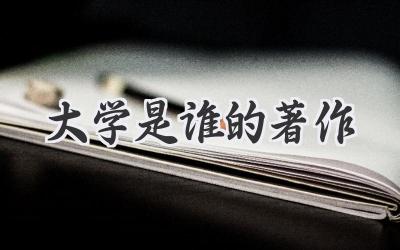 大学是谁的著作